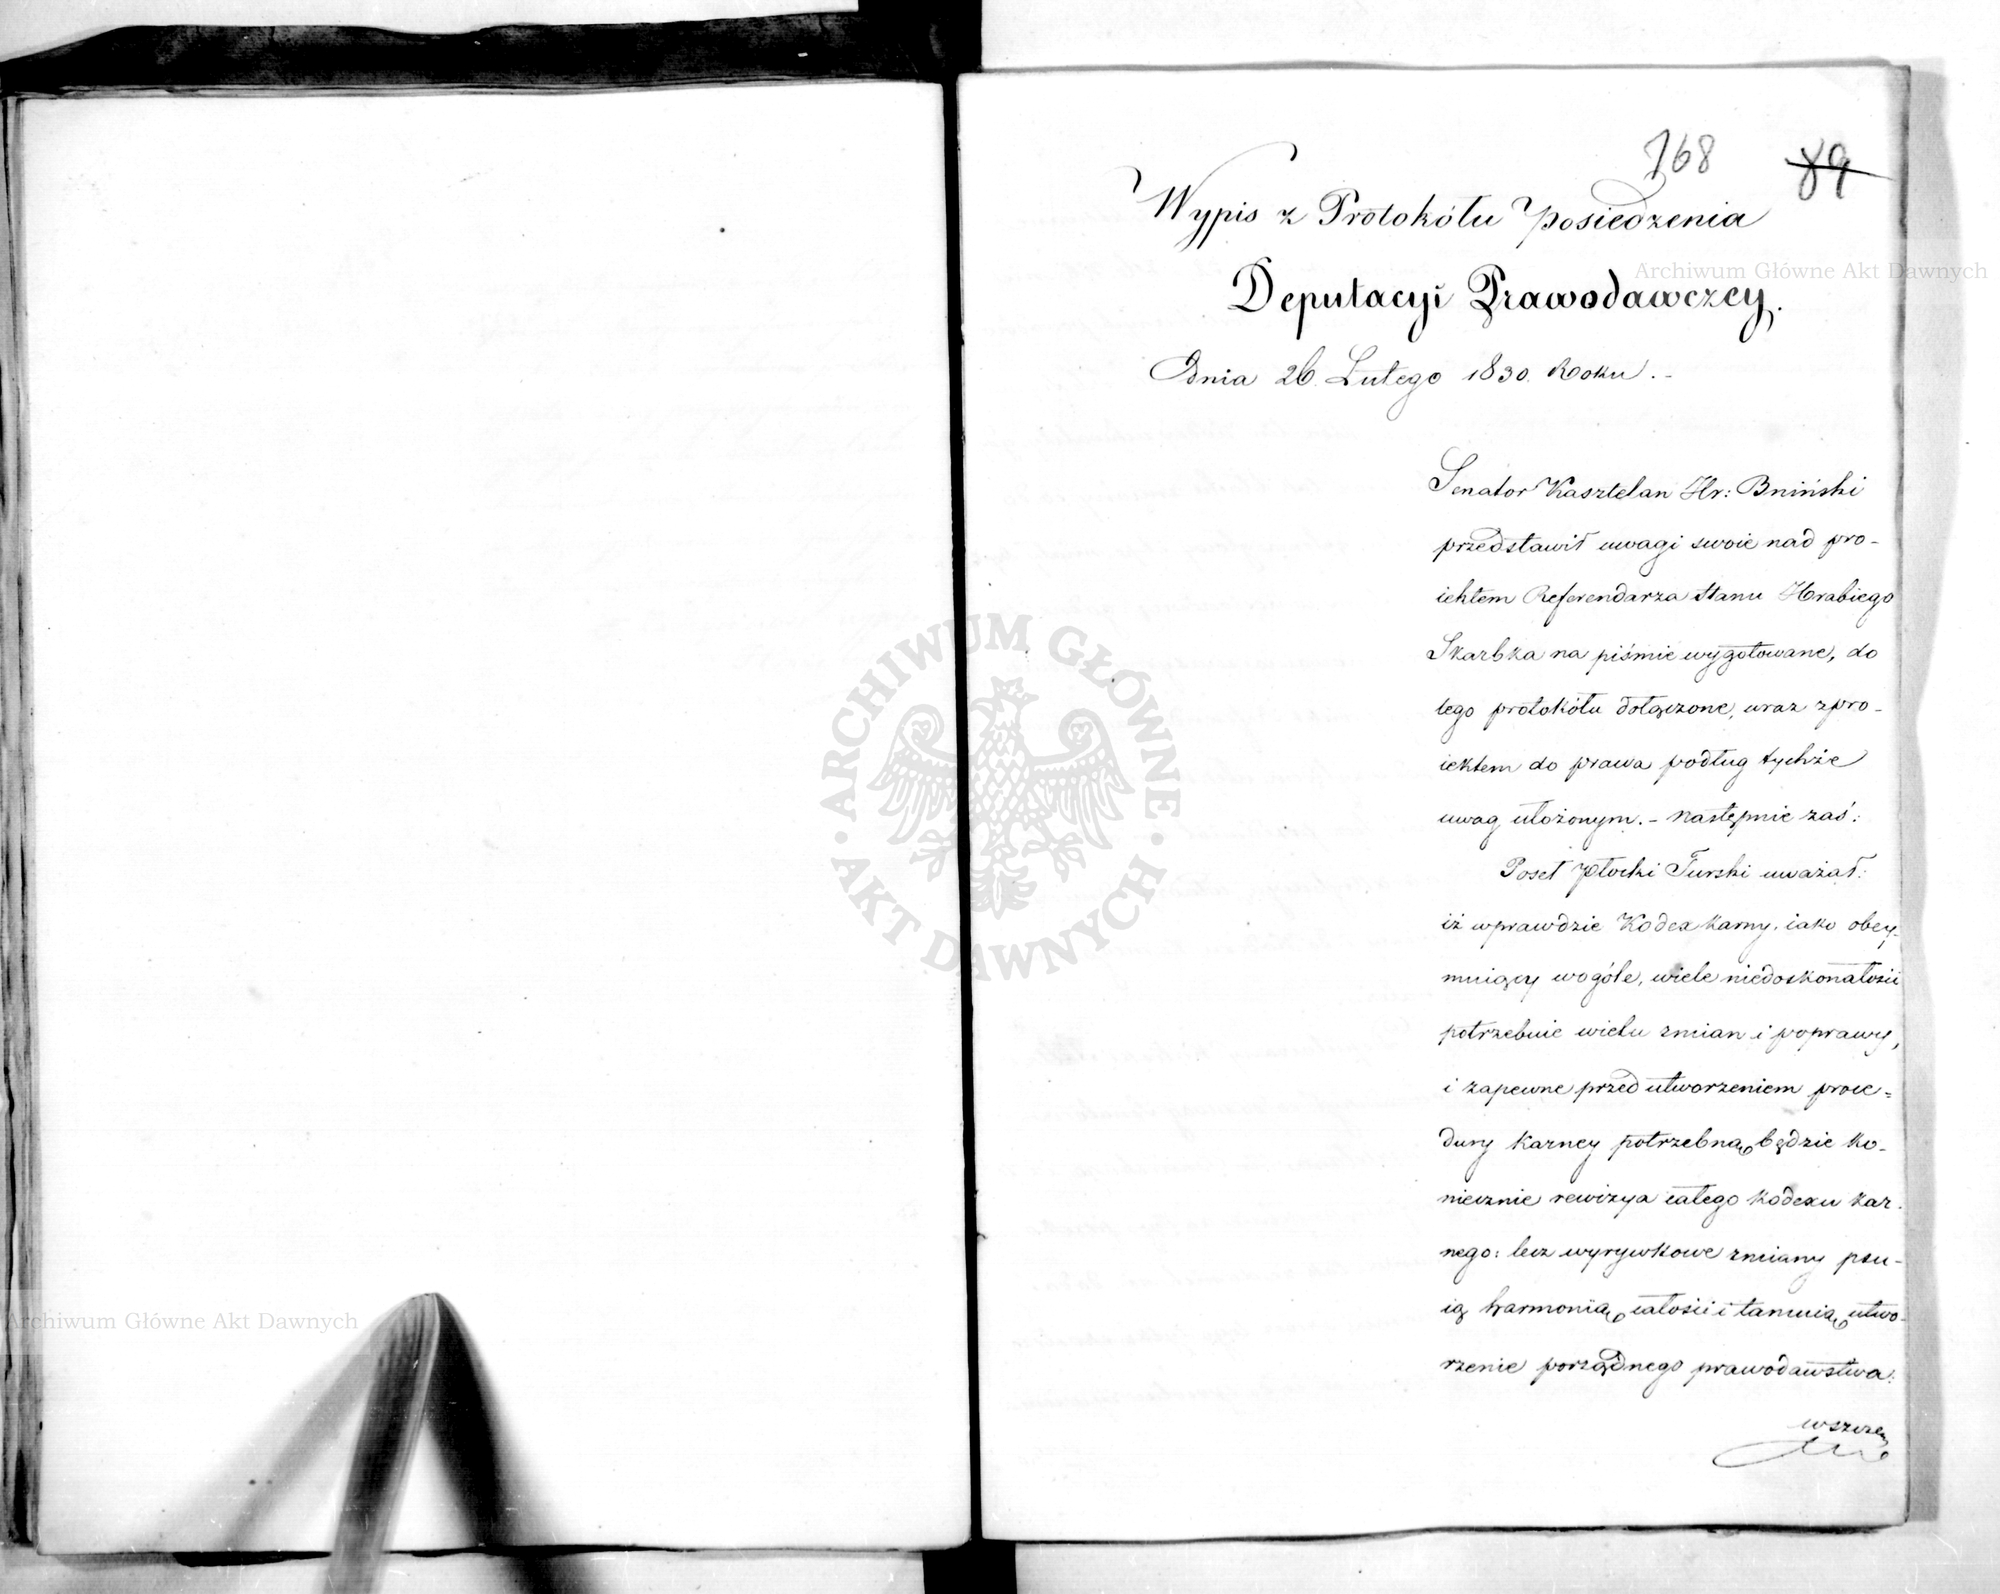 168 89
Wypis z Protokółu Posiedzenia
Deputacyi Prawodawczey.
Dnia 26. Lutego 1830. Roku. -
Senator Kasztelan Hr: Bniński
przedstawił uwagi swoie nad pro-
iektem Referendarza Stanu Hrabiego
Skarbka na piśmie wygotowane, do
tego protokółu dołączone, wraz z pro-
iektem do prawa podług tychże
uwag ułożonym. - następnie zaś:
Poseł Płocki Turski uważał:
iż wprawdzie Kodex karny, iako obey-
muiący wogóle, wiele niedoskonałości
potrzebuie wielu zmian i poprawy,
i zapewne przed utworzeniem proce=
dury karney potrzebną będzie ko-
niecznie rewizya całego kodexu kar-
nego: lecz wyrywkowe zmiany psu-
ią harmonią całości i tamuią utwo-
rzenie porządnego prawodawstwa:
wszcze
Archiwum Główne Akt Dawnych
Archiwum Główne Akt Dawnych
ARCHIWUM GŁÓWNE · AKT DAWNYCH ·